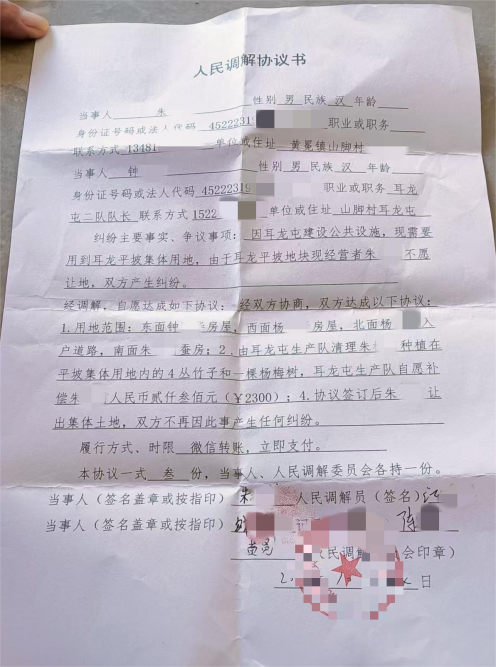 人民调解协议书
当事人 朱 性别 男 民族 汉 年龄
身份证号码或法人代码 45222319 职业或职务
联系方式 13481 单位或住址 黄冕镇山脚村
当事人 钟 性别 男 民族 汉 年龄
身份证号码或法人代码 45222319 职业或职务 耳龙
屯二队队长 联系方式 1522 单位或住址 山脚村耳龙屯
纠纷主要事实、争议事项: 因耳龙屯建设公共设施,现需要
用到耳龙平坡集体用地,由于耳龙平坡地块现经营者朱 不愿
让地,双方产生纠纷。
经调解,自愿达成如下协议: 经双方协商,双方达成以下协议:
1.用地范围:东面钟 蚕房屋,西面杨 房屋,北面杨 入
户道路,南面朱 蚕房;2.由耳龙屯生产队清理朱 种植在
平坡集体用地内的4丛竹子和一棵杨梅树,耳龙屯生产队自愿补
偿朱 人民币贰仟叁佰元(¥2300);4.协议签订后朱 让
出集体土地,双方不再因此事产生任何纠纷。
履行方式、时限 微信转账,立即支付。
本协议一式 叁 份,当事人、人民调解委员会各持一份。
当事人(签名盖章或按指印) 朱 人民调解员(签名) 江
当事人(签名盖章或按指印) 记 陈
黄冕 民调解 会印章)
日